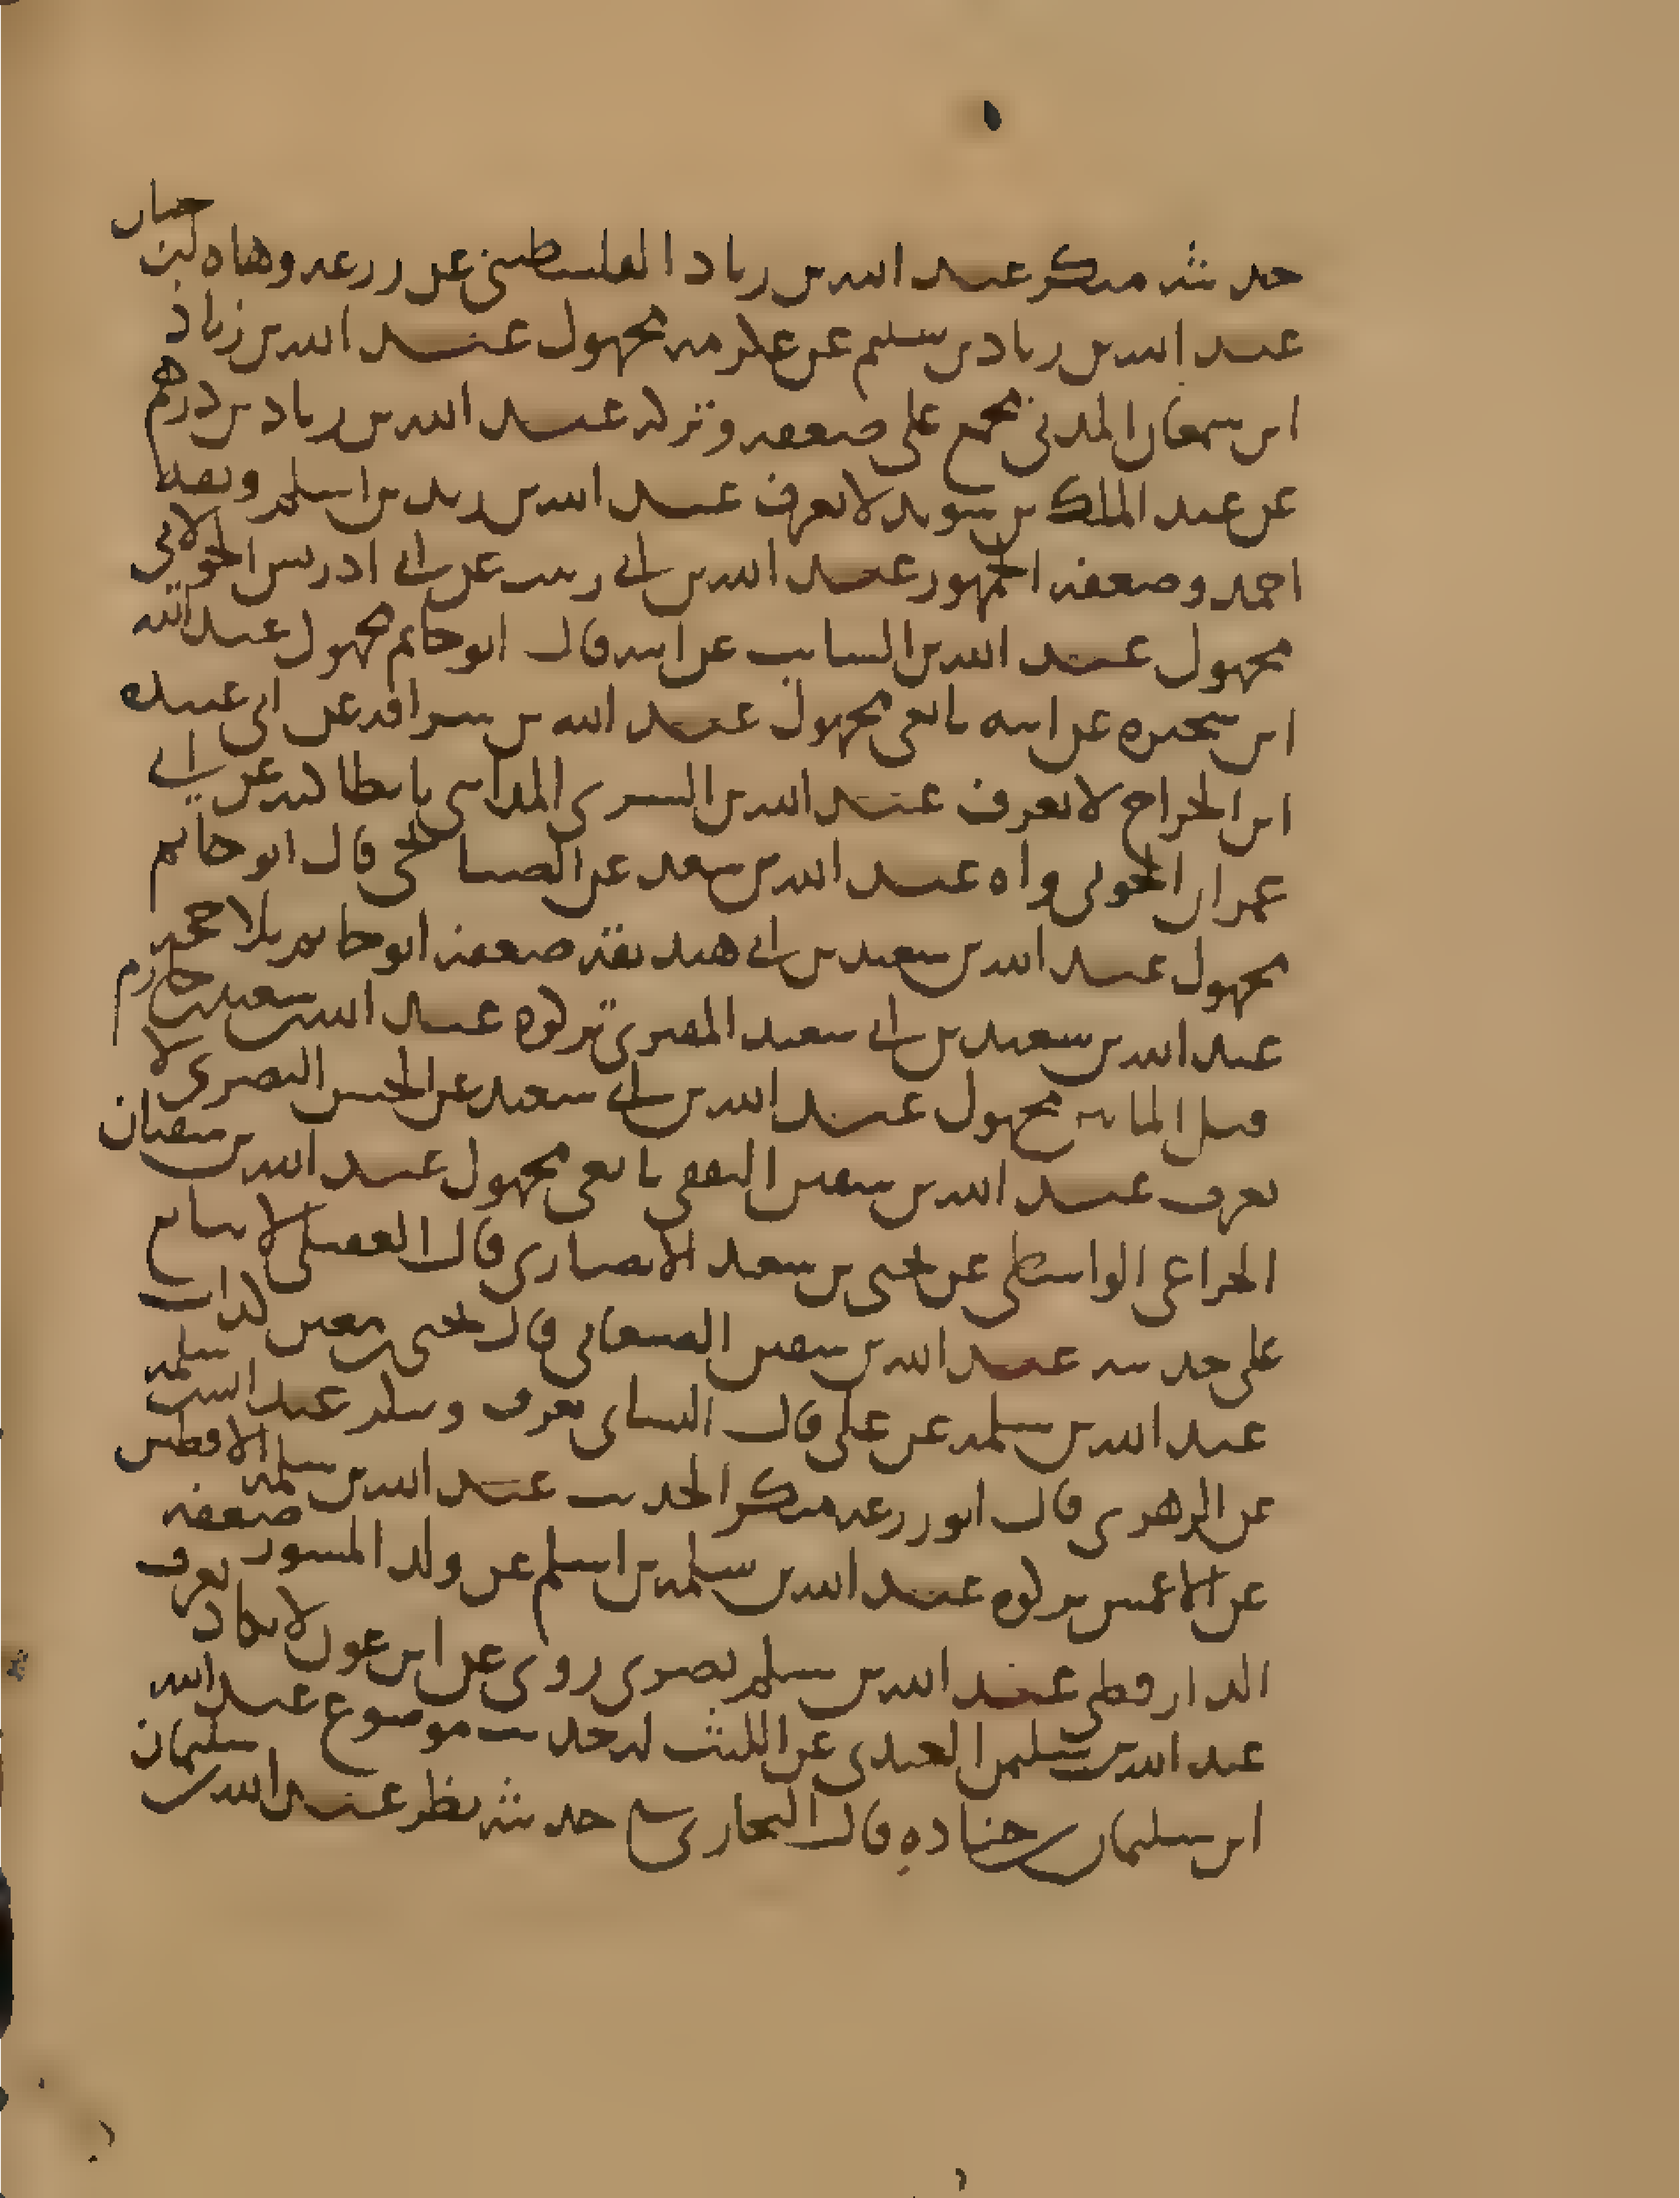 حديثه منكر عبد الله بن زياد الفلسطيني عن زرعه وهاه ابن حبان
عبد الله بن زياد بن سليم عن عكرمه مجهول عبد الله بن زياد
ابن سمعان المدني مجمع على ضعفه وترك عبد الله بن زياد بن درهم
عن عبد الملك بن سويد لا يعرف عبد الله بن زيد بن اسلم وثقه
احمد وضعفه الجمهور عبد الله بن ابي زينب عن ابي ادريس الخولاني
مجهول عبد الله بن السايب عن ابيه قال ابو حاتم مجهول عبد الله
ابن سخبره عن ابيه تابعي مجهول عبد الله بن سراقه عن ابي عبيده
ابن الجراح لا يعرف عبد الله بن السري المدايني بانطاكيه عن ابي
عمران الجوني واه عبد الله بن سعد عن الصنابحي قال ابو حاتم
مجهول عبد الله بن سعيد بن ابي هند ثقه ضعفه ابو حاتم بلا حجه
عبد الله بن سعيد بن ابي سعيد المقبري تركوه عبد الله بن سعيد بن حازم
قبل المايه مجهول عبد الله بن ابي سعيد عن الحسن البصري لا
يعرف عبد الله بن سفين الثقفي تابعي مجهول عبد الله بن سفيان
الخزاعي الواسطي عن يحيى بن سعيد الانصاري قال العقيلي لا يتابع
على حديثه عبد الله بن سفين الصنعاني قال يحيى بن معين كذاب
عبد الله بن سلمه عن علي قال النساي يعرف وينكر عبد الله بن سلمه
عن الزهري قال ابو زرعه منكر الحديث عبد الله بن سلمه الافطس
عن الاعمش تركوه عبد الله بن سلمه بن اسلم عن ولد المسور ضعفه
الدارقطني عبد الله بن سلم بصري روى عن ابن عون لا يكاد يعرف
عبد الله بن سليمن العبدي عن الليث له حديث موضوع عبد الله
ابن سليمان بن جناده قال البخاري في حديثه نظر عبد الله بن سليمان